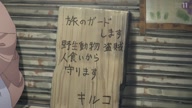 旅のガード
します
野生動物 盗賊
人食いから
守ります
キルコ